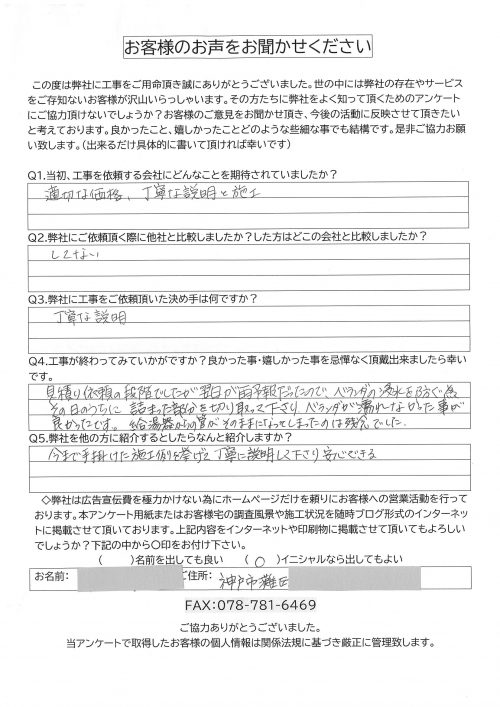 お客様のお声をお聞かせください
この度は弊社に工事をご用命頂き誠にありがとうございました。世の中には弊社の存在やサービス
をご存知ないお客様が沢山いらっしゃいます。その方たちに弊社をよく知って頂くためのアンケート
にご協力頂けないでしょうか？お客様のご意見をお聞かせ頂き、今後の活動に反映させて頂きたい
と考えております。良かったこと、嬉しかったことどのような些細な事でも結構です。是非ご協力お願
い致します。（出来るだけ具体的に書いて頂ければ幸いです）
Q1.当初、工事を依頼する会社にどんなことを期待されていましたか？
適切な価格、丁寧な説明と施工
Q2.弊社にご依頼頂く際に他社と比較しましたか？した方はどこの会社と比較しましたか？
してない
Q3.弊社に工事をご依頼頂いた決め手は何ですか？
丁寧な説明
Q4.工事が終わってみていかがですか？良かった事・嬉しかった事を忌憚なく頂戴出来ましたら幸い
です。
見積り依頼の段階でしたが翌日が雨予報だったので、ベランダの浸水を防ぐ為
その日のうちに詰まった部分を切り取って下さり ベランダが濡れなかった事が
良かったです。給湯器からの管がそのままになってしまったのは残念でした。
Q5.弊社を他の方に紹介するとしたらなんと紹介しますか？
今まで手掛けた施工例を挙げて丁寧に説明して下さり安心できる
◇弊社は広告宣伝費を極力かけない為にホームページだけを頼りにお客様への営業活動を行って
おります。本アンケート用紙またはお客様宅の調査風景や施工状況を随時ブログ形式のインターネッ
トに掲載させて頂いております。上記内容をインターネットや印刷物に掲載させて頂いてもよろしい
でしょうか？下記の中から〇印をお付け下さい。
（　　）名前を出しても良い　（ ○ ）イニシャルなら出してもよい
お名前：　ご住所：　神戸市灘区
FAX:078-781-6469
ご協力ありがとうございました。
当アンケートで取得したお客様の個人情報は関係法規に基づき厳正に管理致します。